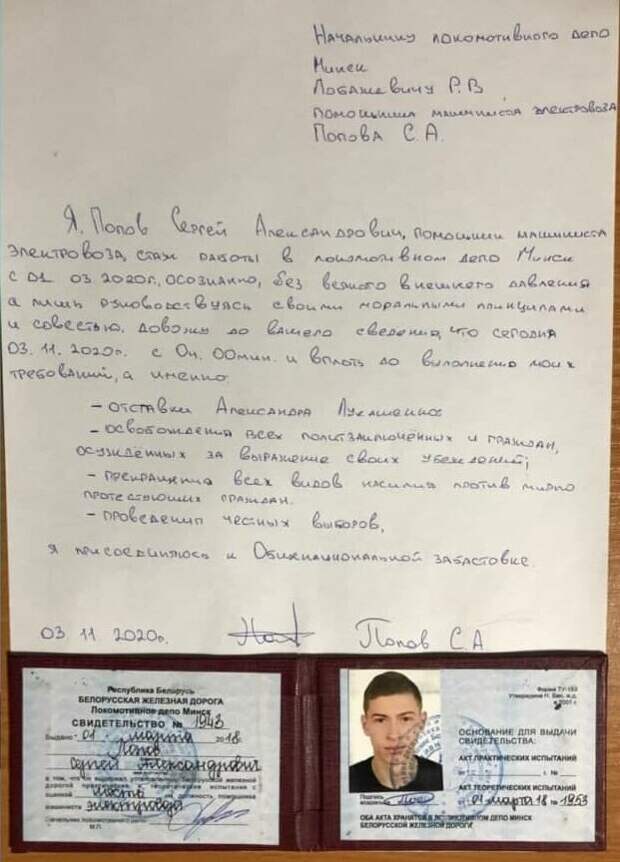 Начальнику локомотивного депо
Минск
Лобашевичу Р.В
помощника машиниста электровоза
Попова С.А.
Я, Попов Сергей Александрович, помощник машиниста
электровоза, стаж работы в локомотивном депо Минск
с 01 03 2020г., осознанно, без всякого внешнего давления
а лишь руководствуясь своими моральными принципами
и совестью, довожу до вашего сведения, что сегодня
03.11.2020г. с 0ч. 00мин. и вплоть до выполнения моих
требований, а именно
- отставки Александра Лукашенко;
- освобождения всех политзаключённых и граждан,
осуждённых за выражение своих убеждений;
- прекращения всех видов насилия против мирно
протестующих граждан.
- проведения честных выборов,
я присоединяюсь к Общенациональной забастовке.
03 11 2020г. Попов С.А
Республика Беларусь
БЕЛОРУССКАЯ ЖЕЛЕЗНАЯ ДОРОГА
Локомотивное депо Минск
СВИДЕТЕЛЬСТВО № 1943
Выдано 01 марта 2018
Попов
Сергей Александрович
в том, что выдержал установленные Белорусской железной
дорогой практические и теоретические испытания с
оценкой на должность помощника
машиниста электровоза
Начальник локомотивного депо
М.П.
Форма ТУ-163
Утверждена Н. Бел. ж.д.
2007 г.
ОСНОВАНИЕ ДЛЯ ВЫДАЧИ
СВИДЕТЕЛЬСТВА:
АКТ ПРАКТИЧЕСКИХ ИСПЫТАНИЙ
от г. №
АКТ ТЕОРЕТИЧЕСКИХ ИСПЫТАНИЙ
от 01 марта 18 № 1953
Подпись
владельца
ОБА АКТА ХРАНЯТСЯ В ЛОКОМОТИВНОМ ДЕПО МИНСК
БЕЛОРУССКОЙ ЖЕЛЕЗНОЙ ДОРОГИ